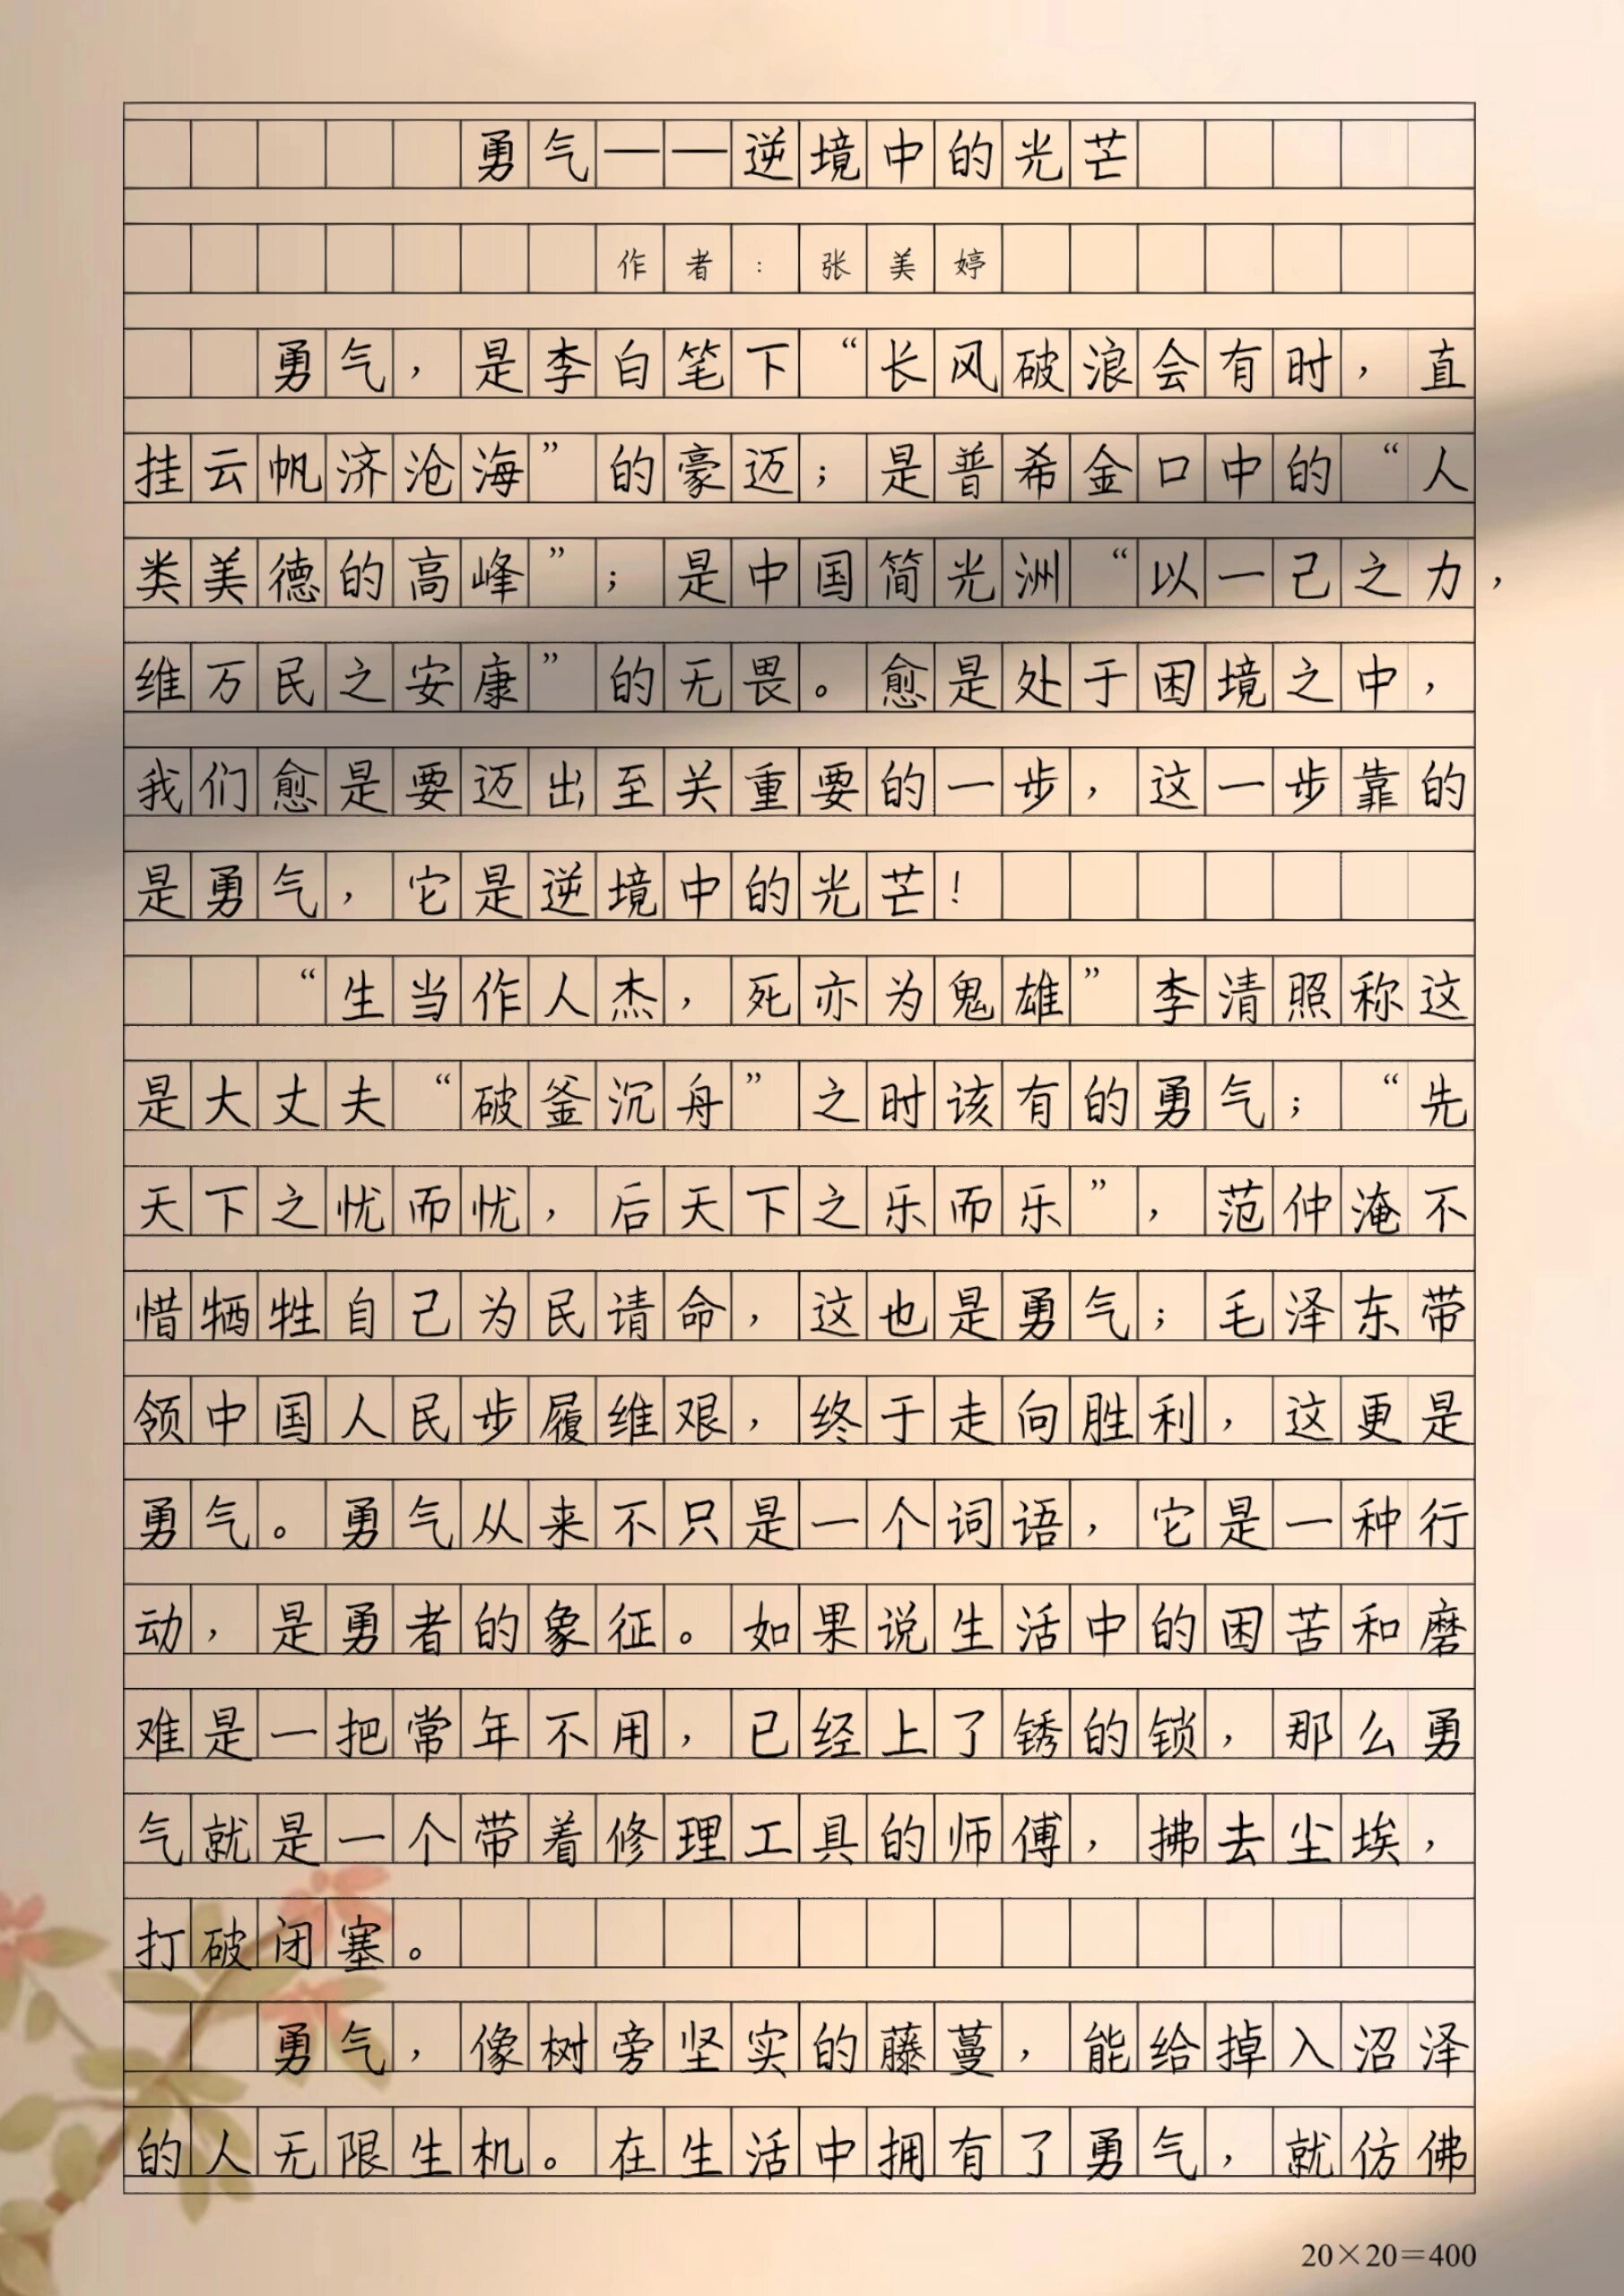 勇气——逆境中的光芒
作者：张美婷
勇气，是李白笔下“长风破浪会有时，直
挂云帆济沧海”的豪迈；是普希金口中的“人
类美德的高峰”；是中国简光洲“以一己之力，
维万民之安康”的无畏。愈是处于困境之中，
我们愈是要迈出至关重要的一步，这一步靠的
是勇气，它是逆境中的光芒！
“生当作人杰，死亦为鬼雄”李清照称这
是大丈夫“破釜沉舟”之时该有的勇气；“先
天下之忧而忧，后天下之乐而乐”，范仲淹不
惜牺牲自己为民请命，这也是勇气；毛泽东带
领中国人民步履维艰，终于走向胜利，这更是
勇气。勇气从来不只是一个词语，它是一种行
动，是勇者的象征。如果说生活中的困苦和磨
难是一把常年不用，已经上了锈的锁，那么勇
气就是一个带着修理工具的师傅，拂去尘埃，
打破闭塞。
勇气，像树旁坚实的藤蔓，能给掉入沼泽
的人无限生机。在生活中拥有了勇气，就仿佛
20×20=400